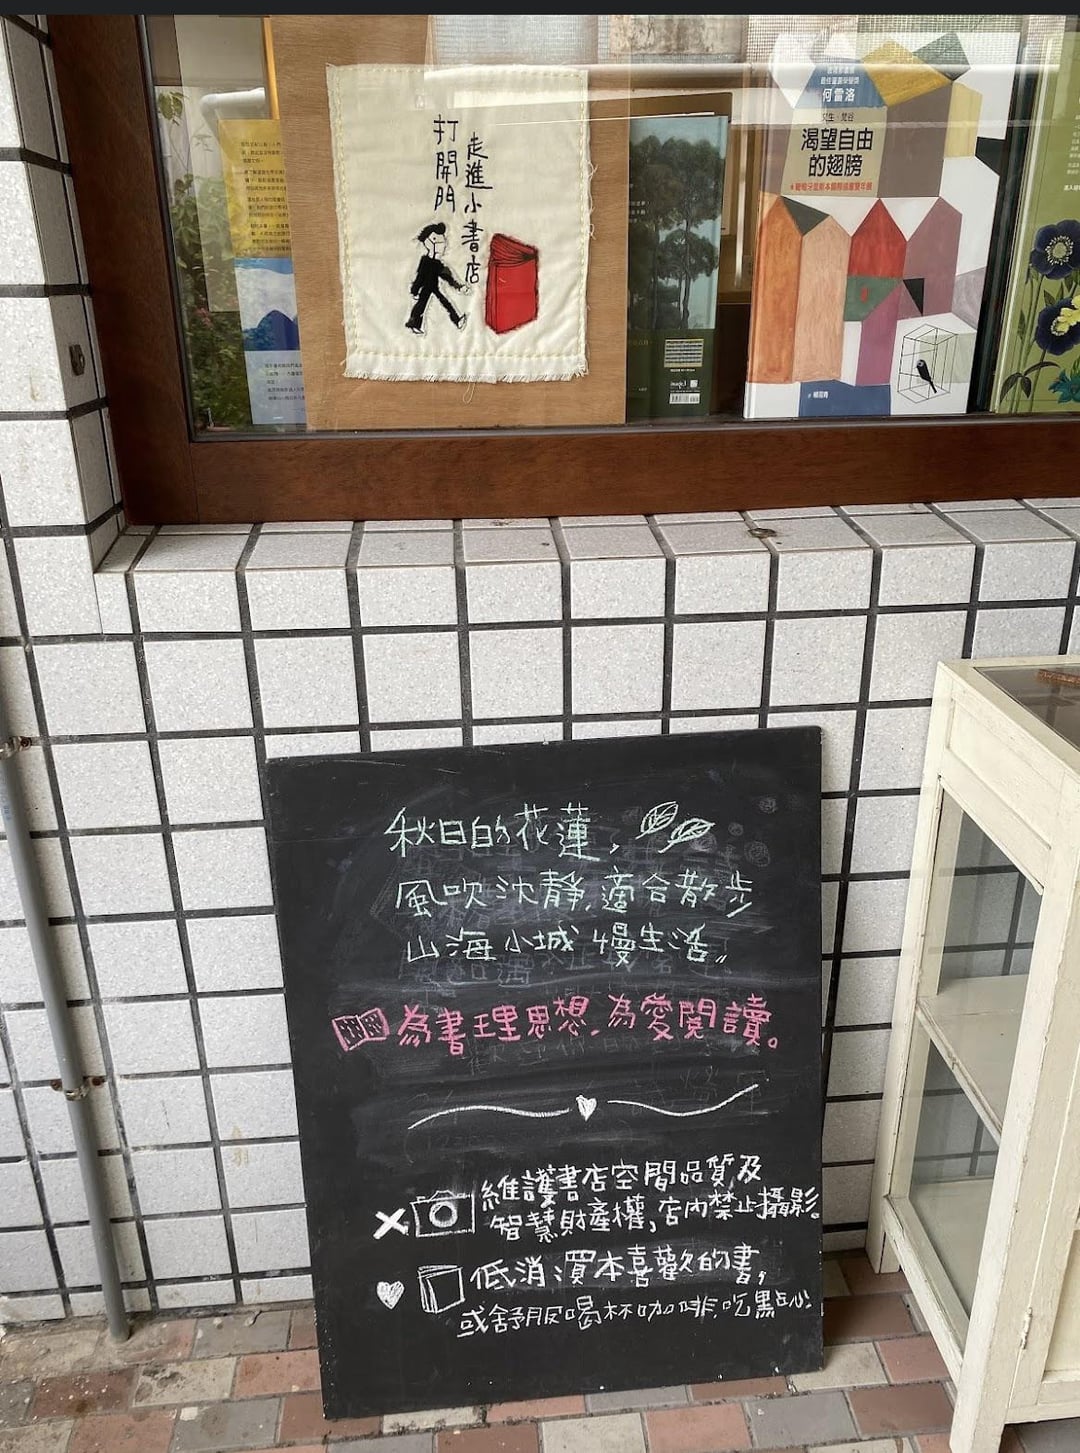 打開門
走進小書店
何雷洛
渴望自由
的翅膀
秋日的花蓮,
風吹沈靜,適合散步
山海小城 慢生活。
為書理思想,為愛閱讀。
維護書店空間品質及
智慧財產權,店內禁止攝影。
低消 買本喜歡的書,
或舒服喝杯咖啡.吃點心